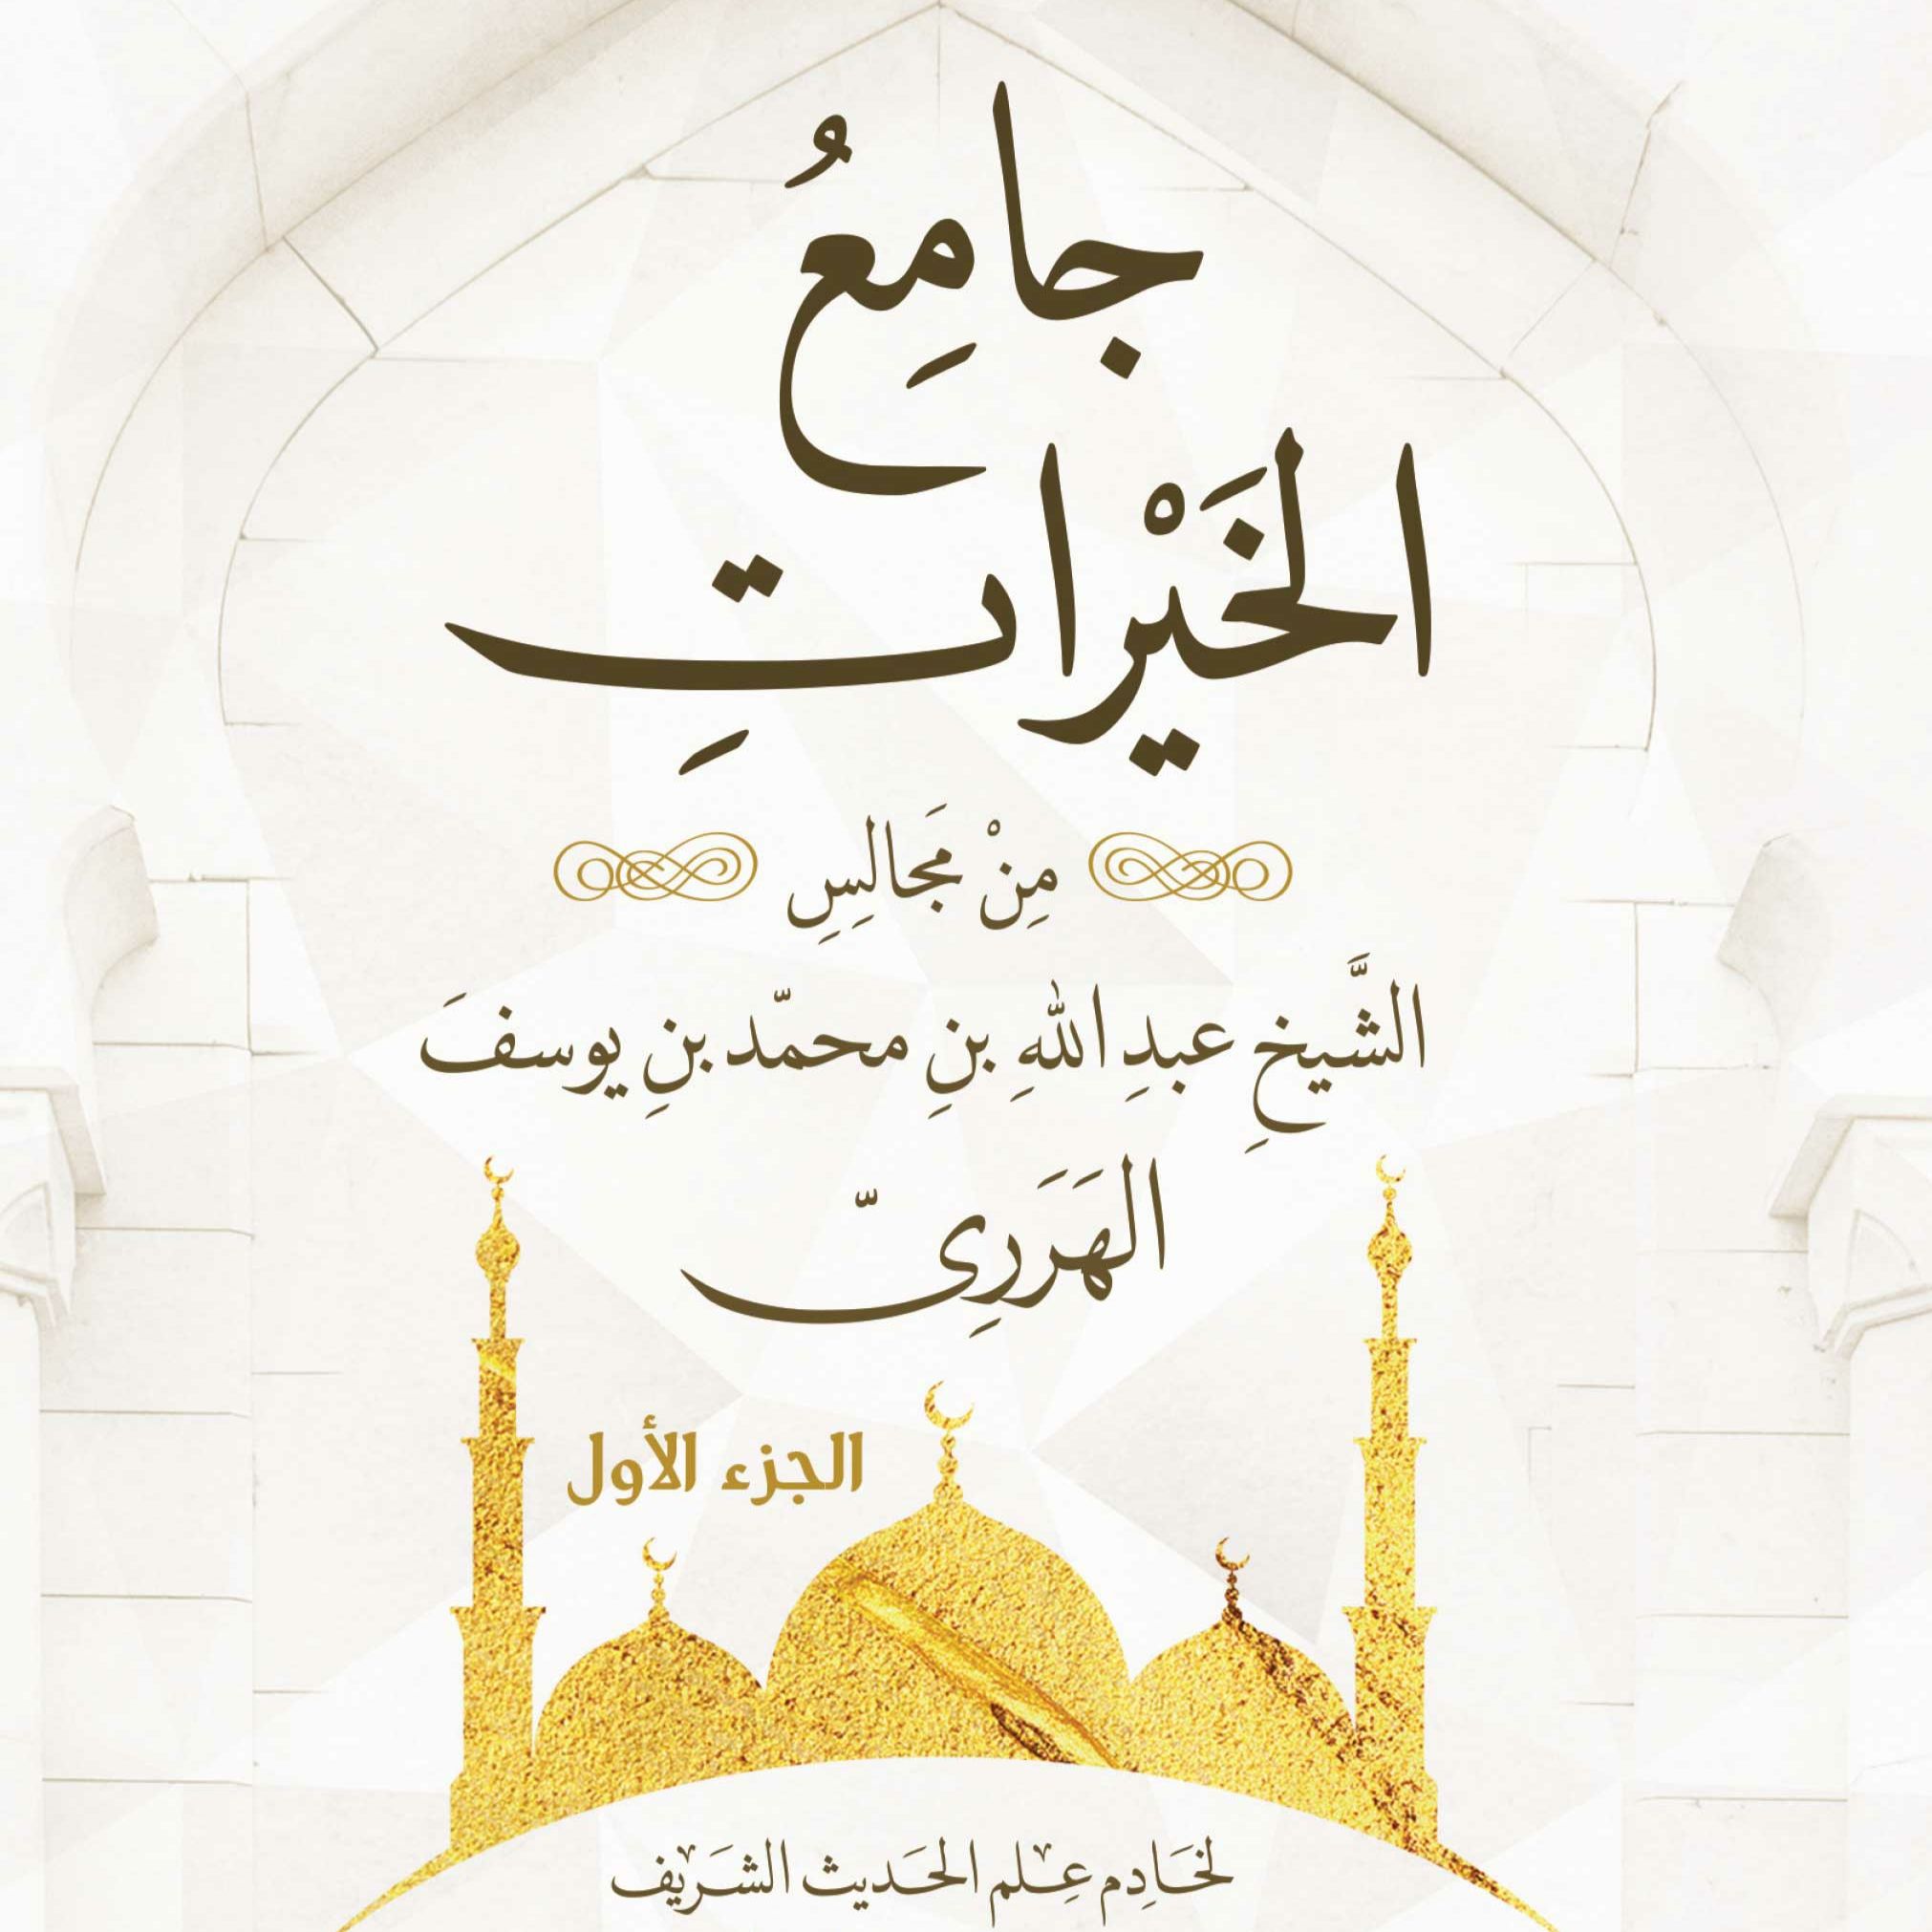 جامِعُ
الخَيْراتِ
مِنْ مَجالِسِ
الشَّيخِ عبدِ اللهِ بنِ محمّد بنِ يوسفَ
الهَرَرِيّ
الجزء الأول
لخَادِم عِلم الحَديث الشَريف